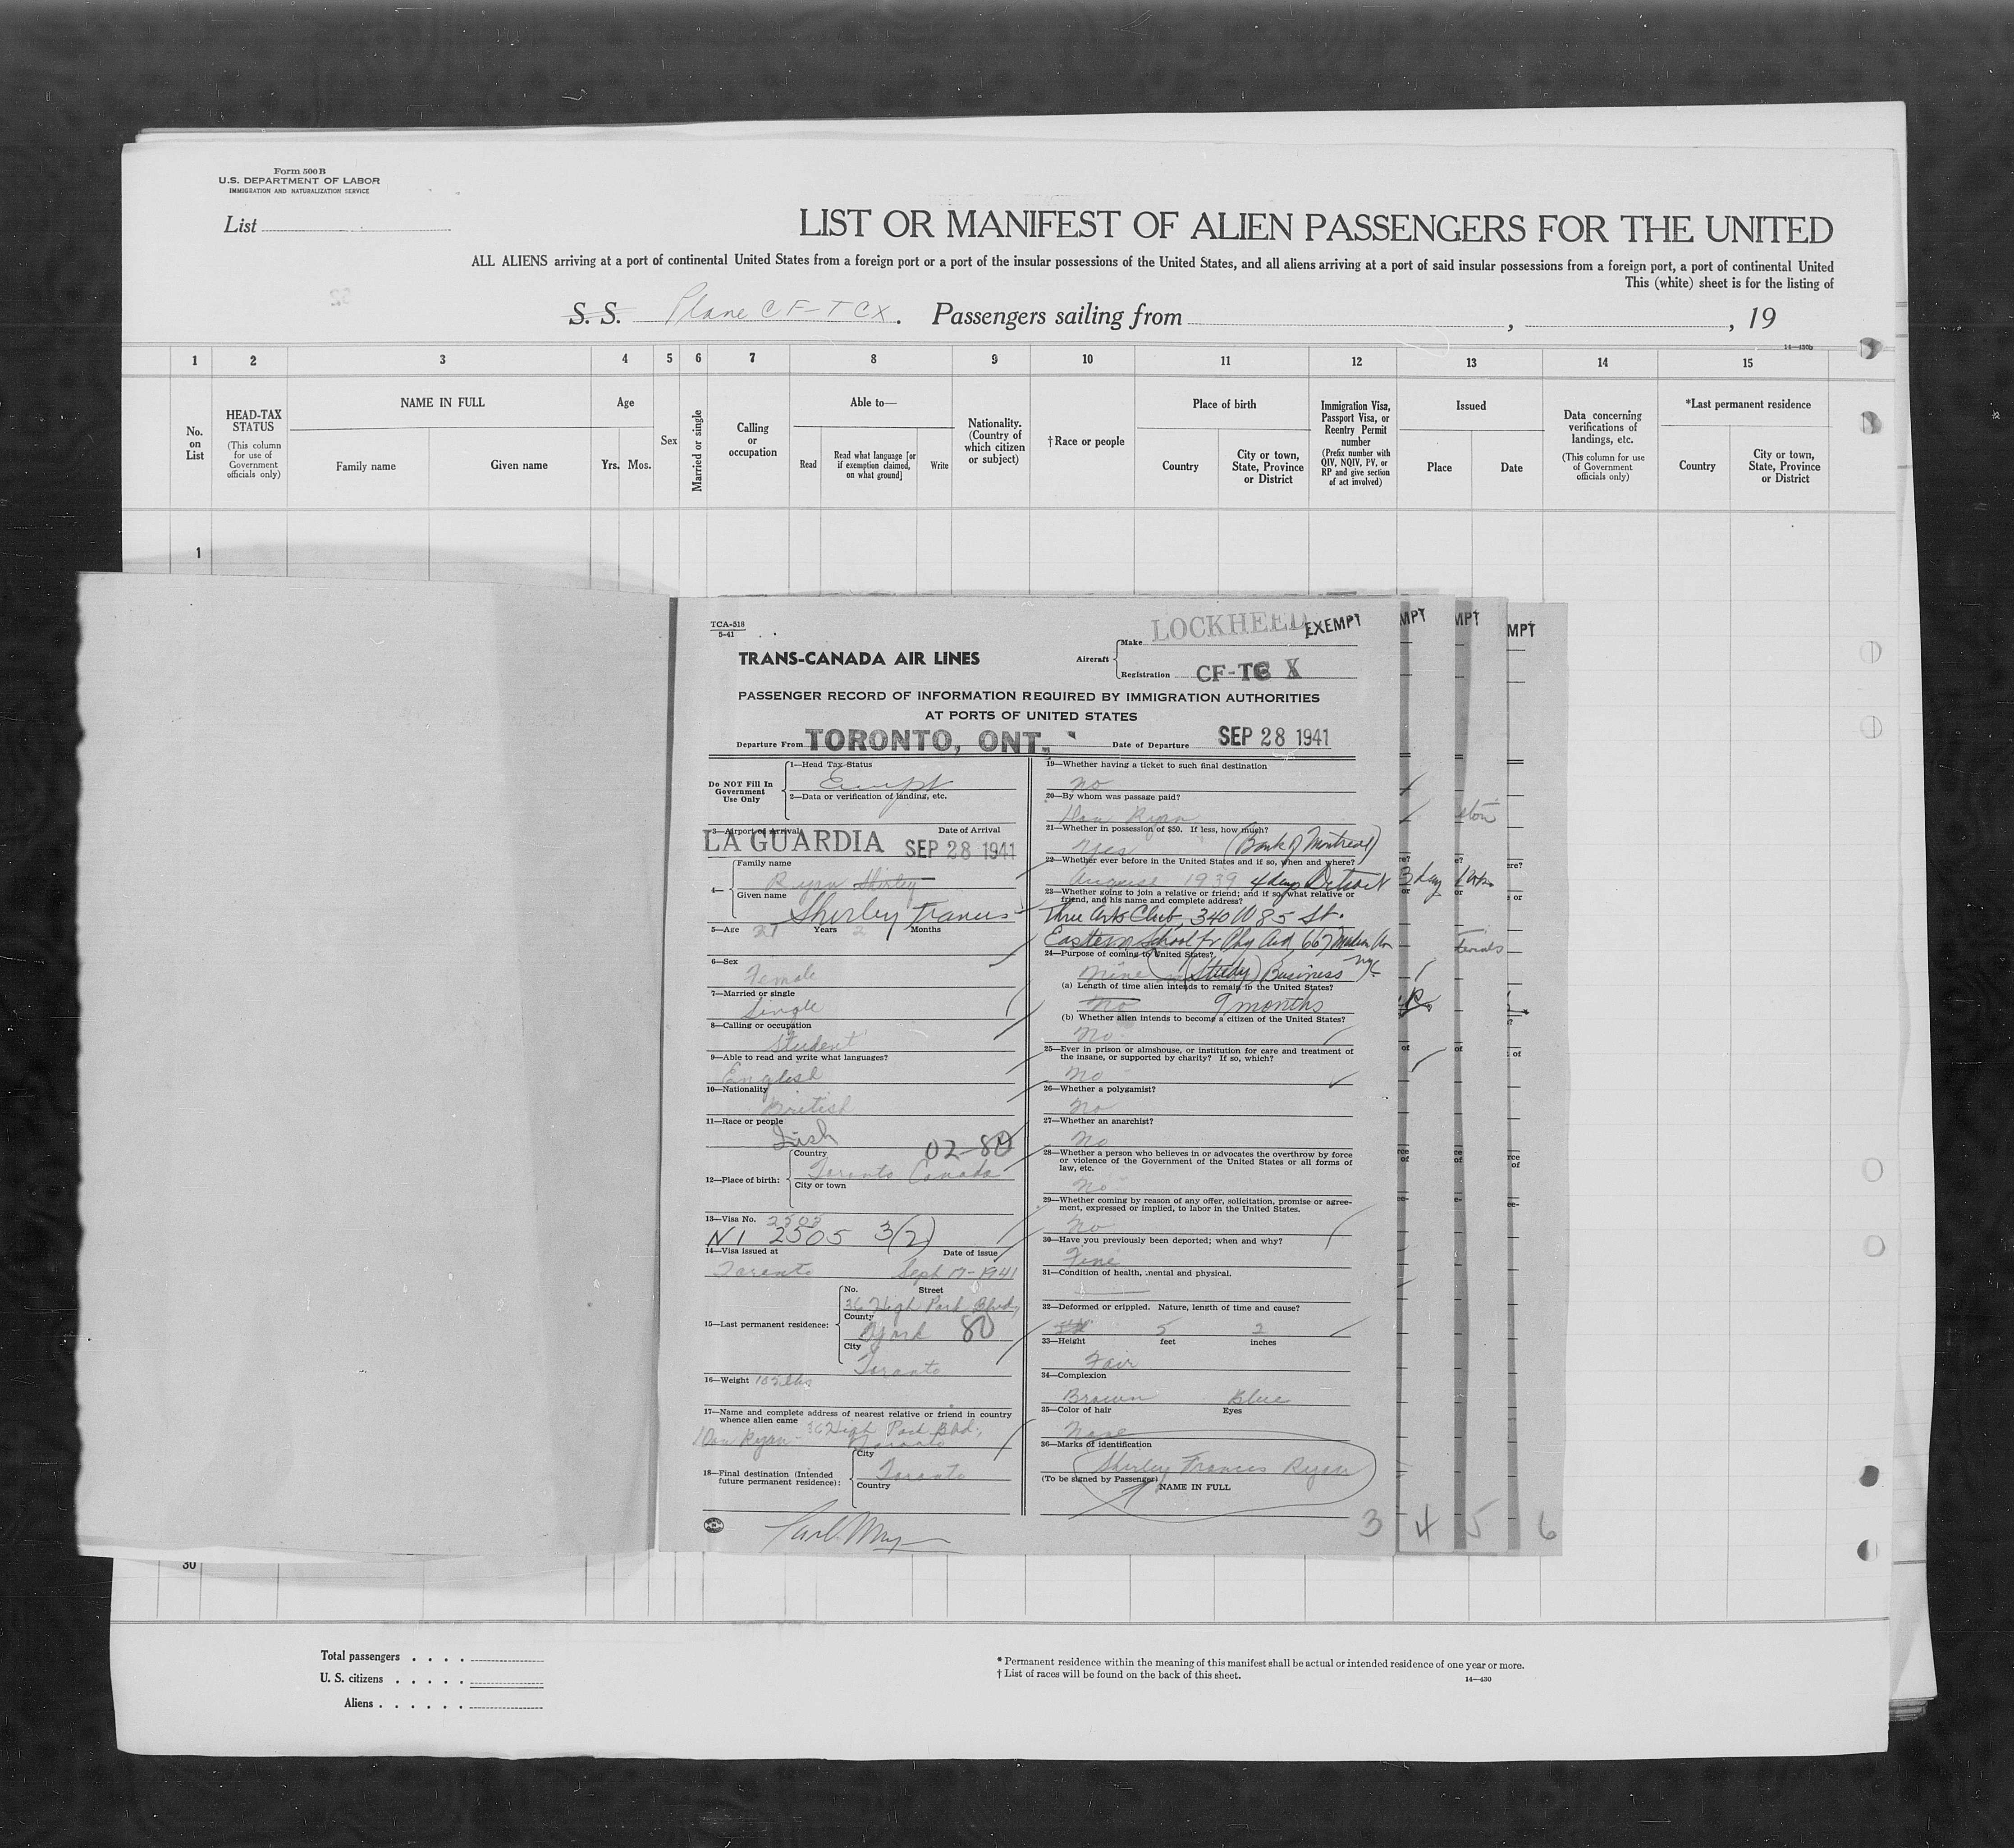 Form 500 B
U.S. DEPARTMENT OF LABOR
IMMIGRATION AND NATURALIZATION SERVICE
List
LIST OR MANIFEST OF ALIEN PASSENGERS FOR THE UNITED
ALL ALIENS arriving at a port of continental United States from a foreign port or a port of the insular possessions of the United States, and all aliens arriving at a port of said insular possessions from a foreign port, a port of continental United
This (white) sheet is for the listing of
S. S. Plane CF-TCX. Passengers sailing from , , 19
14—430b
1 2 3 4 5 6 7 8 9 10 11 12 13 14 15
No. on List
HEAD-TAX STATUS
(This column for use of Government officials only)
NAME IN FULL
Family name Given name
Age
Yrs. Mos.
Sex
Married or single
Calling or occupation
Able to—
Read
Read what language [or if exemption claimed, on what ground]
Write
Nationality. (Country of which citizen or subject)
†Race or people
Place of birth
Country
City or town, State, Province or District
Immigration Visa, Passport Visa, or Reentry Permit number
(Prefix number with QIV, NQIV, PV, or RP and give section of act involved)
Issued
Place Date
Data concerning verifications of landings, etc.
(This column for use of Government officials only)
*Last permanent residence
Country
City or town, State, Province or District
1
TCA-518
5-41
TRANS-CANADA AIR LINES
Aircraft
Make LOCKHEED
EXEMPT
Registration CF-TC X
PASSENGER RECORD OF INFORMATION REQUIRED BY IMMIGRATION AUTHORITIES
AT PORTS OF UNITED STATES
Departure From TORONTO, ONT. Date of Departure SEP 28 1941
Do NOT Fill In Government Use Only
1—Head Tax Status
Exempt
2—Data or verification of landing, etc.
3—Airport of Arrival Date of Arrival
LA GUARDIA SEP 28 1941
4—
Family name
Ryan Shirley
Given name
Shirley Frances
5—Age 21 Years 2 Months
6—Sex
Female
7—Married or single
Single
8—Calling or occupation
Student
9—Able to read and write what languages?
English
10—Nationality
British
11—Race or people
Irish 02-80
12—Place of birth:
Country
Toronto Canada
City or town
13—Visa No. 2505
NI 2505 3(2)
14—Visa issued at Date of issue
Toronto Sept 17-1941
15—Last permanent residence:
No. Street
36 High Park Blvd,
County
York 80
City
Toronto
16—Weight 105 lbs
17—Name and complete address of nearest relative or friend in country whence alien came
36 High Park Blvd,
Dan Ryan - Toronto
18—Final destination (Intended future permanent residence):
City
Toronto
Country
19—Whether having a ticket to such final destination
No
20—By whom was passage paid?
Dan Ryan
21—Whether in possession of $50. If less, how much?
Yes (Bank of Montreal)
22—Whether ever before in the United States and if so, when and where?
August 1939 4 days Detroit
23—Whether going to join a relative or friend; and if so, what relative or friend, and his name and complete address?
Three Arts Club, 340 W 85 St.
Eastern School for Phy Aid, 667 Madison Av
24—Purpose of coming to United States? NYC
(Study) Business
(a) Length of time alien intends to remain in the United States?
No 9 months
(b) Whether alien intends to become a citizen of the United States?
No
25—Ever in prison or almshouse, or institution for care and treatment of the insane, or supported by charity? If so, which?
No
26—Whether a polygamist?
No
27—Whether an anarchist?
No
28—Whether a person who believes in or advocates the overthrow by force or violence of the Government of the United States or all forms of law, etc.
No
29—Whether coming by reason of any offer, solicitation, promise or agreement, expressed or implied, to labor in the United States.
No
30—Have you previously been deported; when and why?
Fine
31—Condition of health, mental and physical.
32—Deformed or crippled. Nature, length of time and cause?
5 2
33—Height feet inches
Fair
34—Complexion
Brown Blue
35—Color of hair Eyes
None
36—Marks of identification
Shirley Frances Ryan
(To be signed by Passenger)
NAME IN FULL
3 4 5 6
30
Total passengers
U. S. citizens
Aliens
* Permanent residence within the meaning of this manifest shall be actual or intended residence of one year or more.
† List of races will be found on the back of this sheet.
14—430